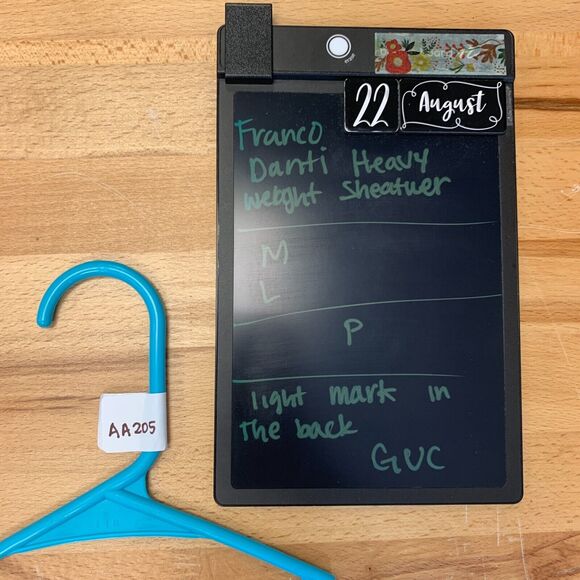 22 August
Franco
Danti Heavy
webght sheatuer
M
L
P
light mark in
The back
GUC
AA205